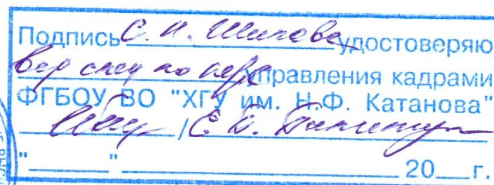 Подпись С. И. Шилова удостоверяю
Вед спец по перс правления кадрами
ФГБОУ ВО "ХГУ им. Н.Ф. Катанова"
/Е. Ю.
"____"____________20__г.